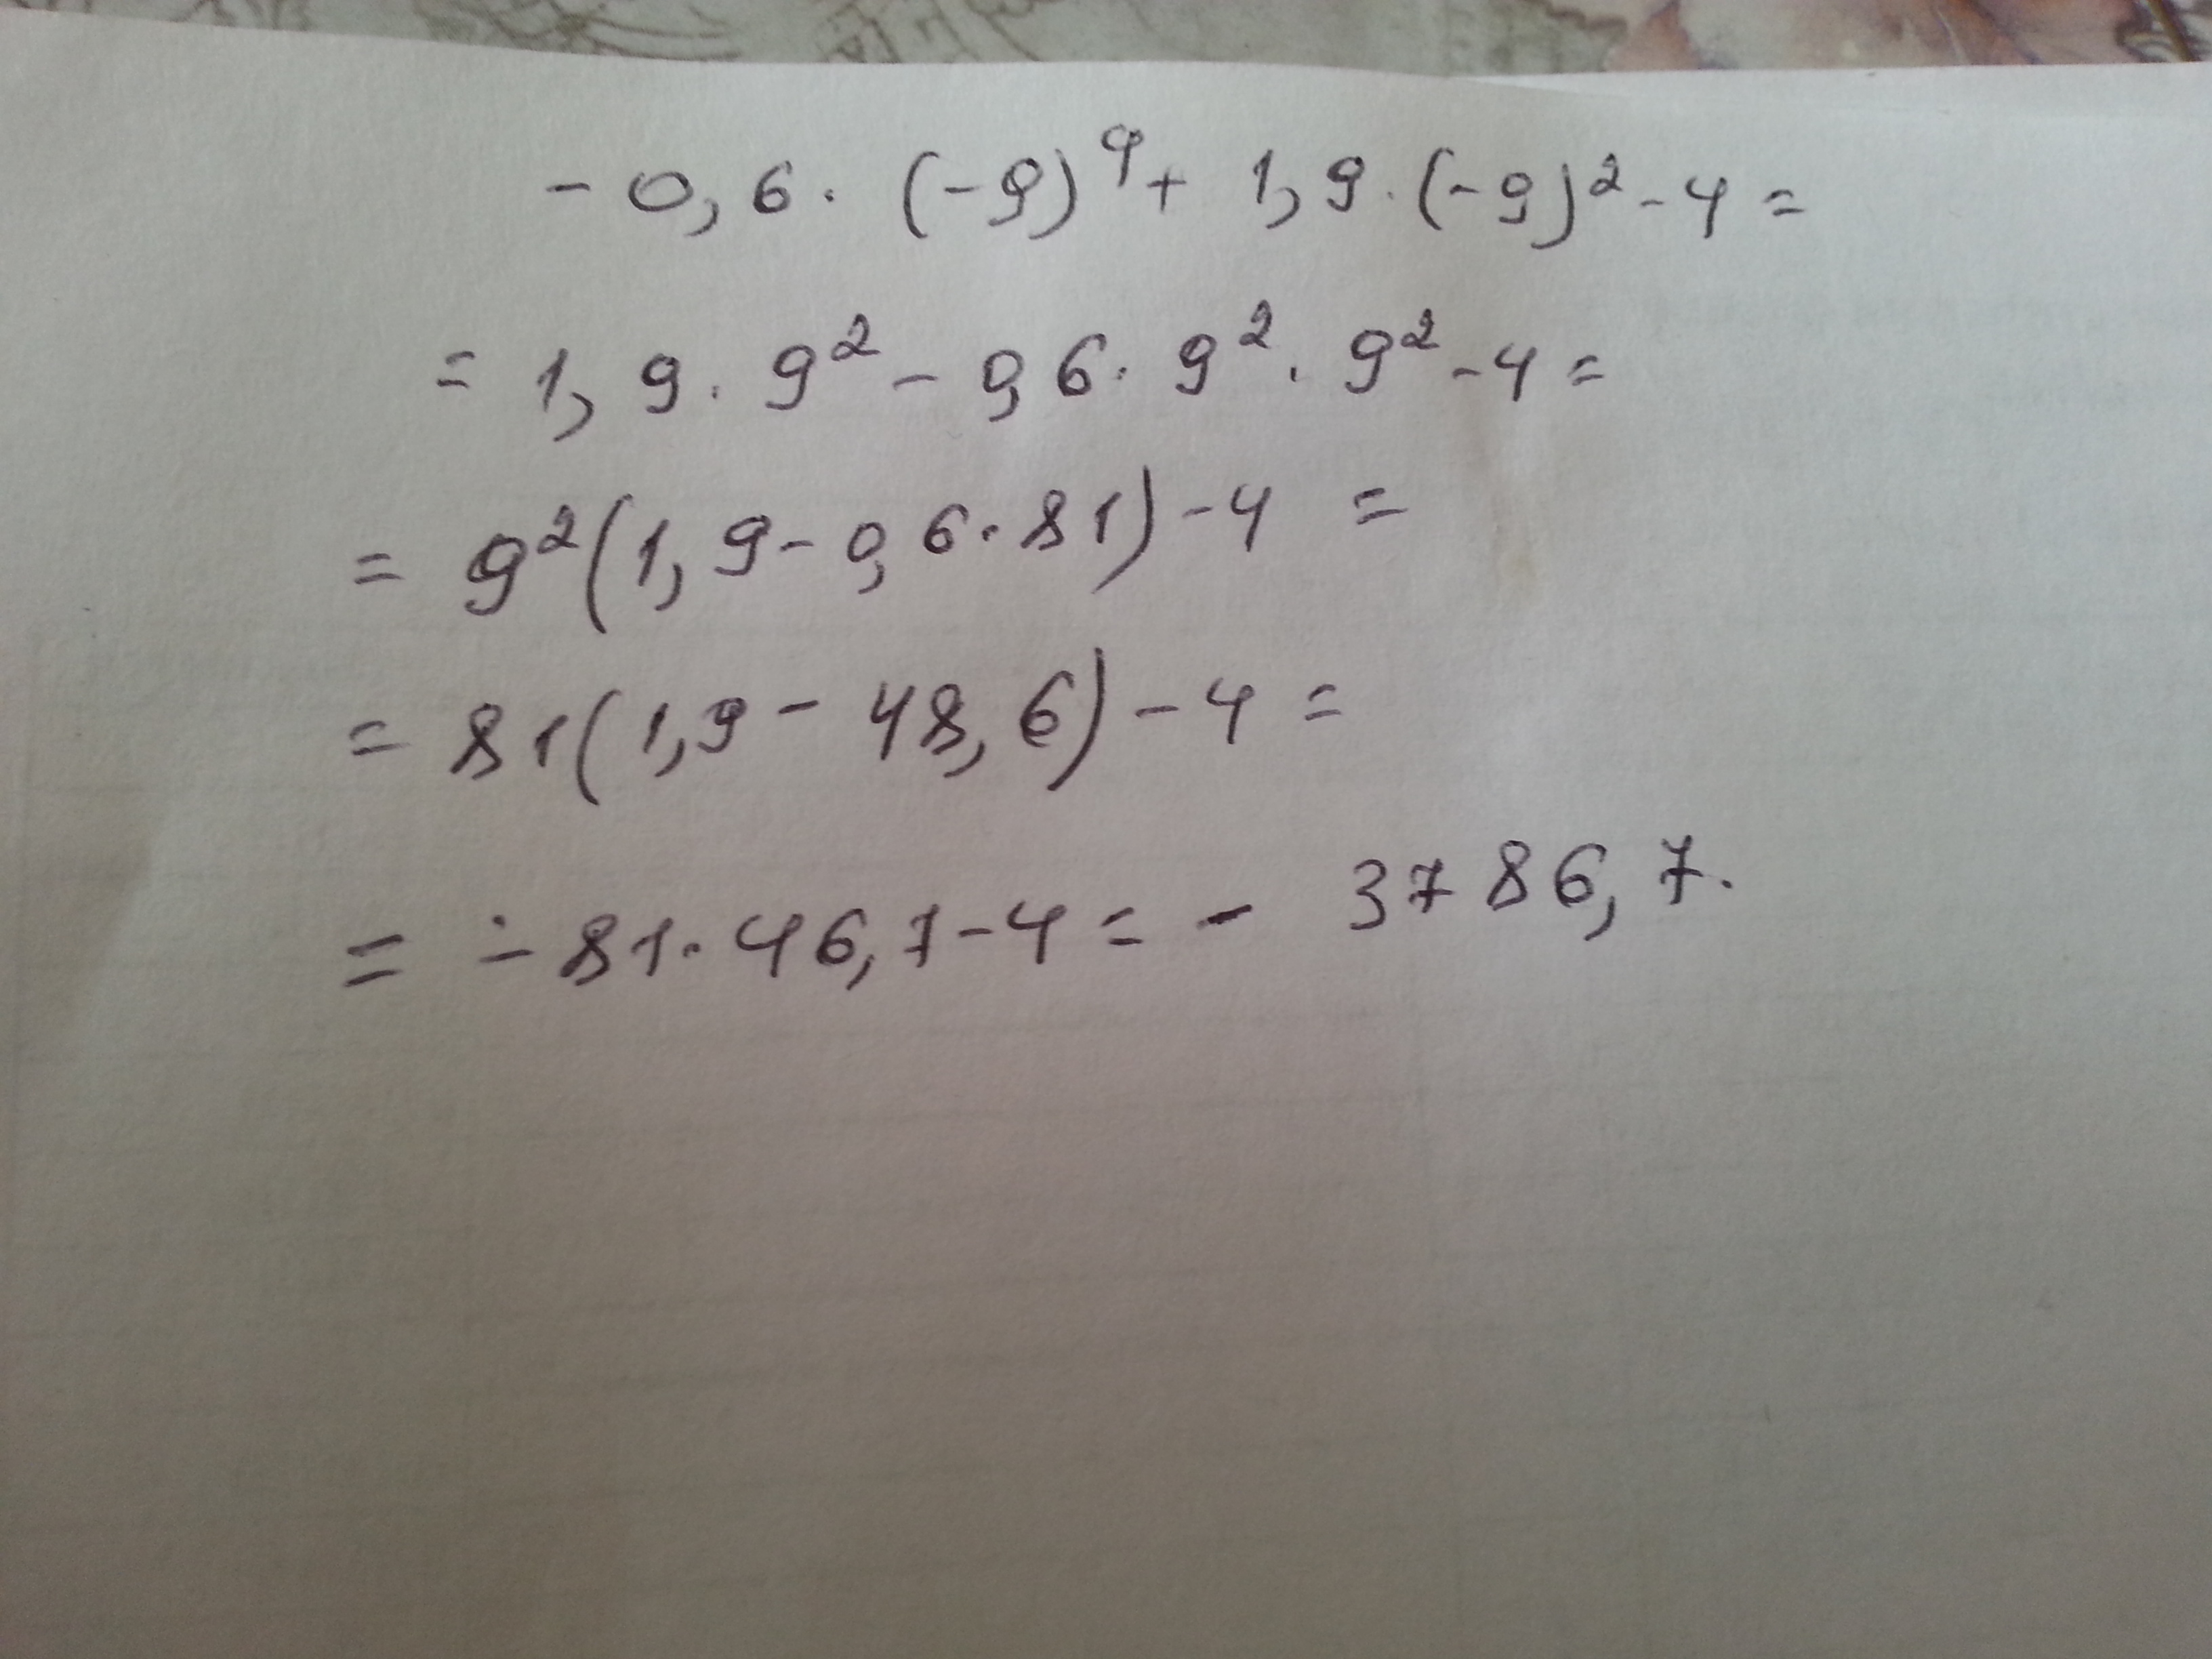 - 0,6 · (-9)⁴ + 1,9 · (-9)² - 4 =
= 1,9 · 9² - 0,6 · 9² · 9² - 4 =
= 9² (1,9 - 0,6 · 81) - 4 =
= 81 (1,9 - 48,6) - 4 =
= - 81 · 46,7 - 4 = - 3786,7.